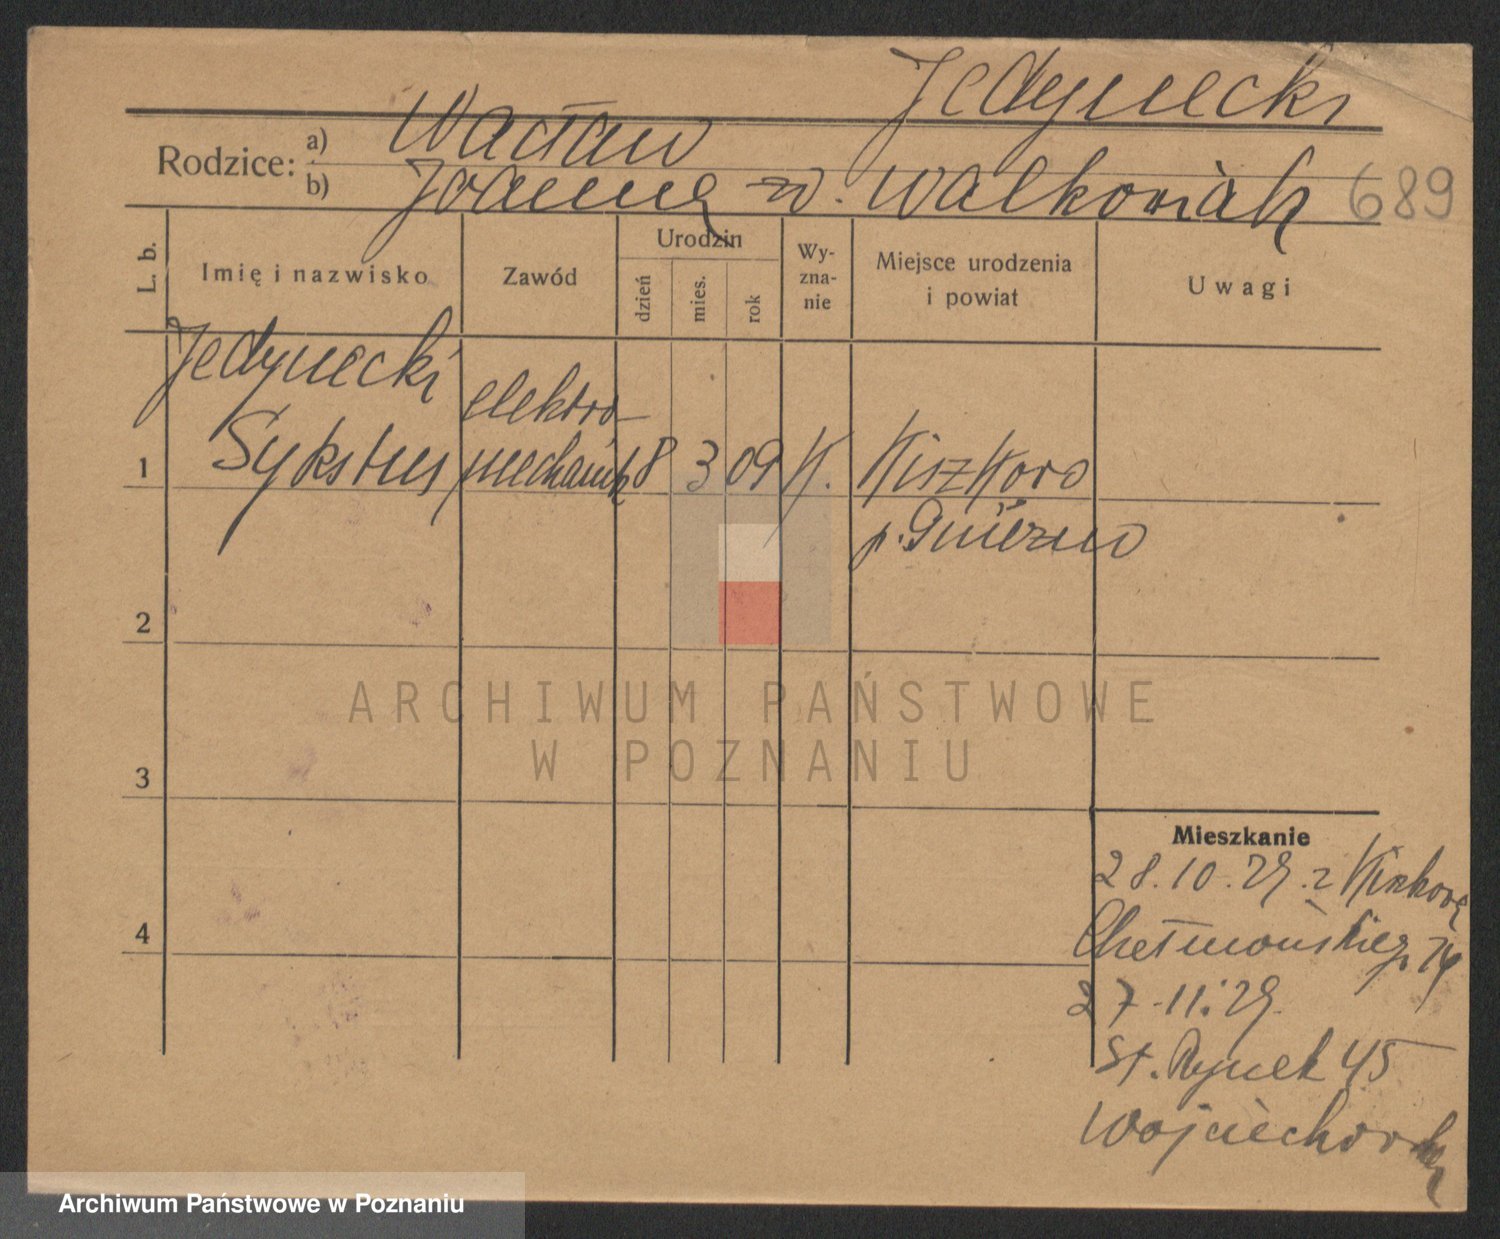 Jedynecki
Rodzice: a) Wacław
b) Joanna z. w. Walkowiak 689
L. b. Imię i nazwisko Zawód Urodzin dzień mies. rok Wy-zna-nie Miejsce urodzenia i powiat Uwagi
Jedynecki elektro-
1 Sykstus mechanik 8 3 09 K. Kiszkowo
p. Gniezno
2
ARCHIWUM PAŃSTWOWE
W POZNANIU
3
Mieszkanie
28.10.29. z Kiszkowa
4 Chełmońskiego 14
27-11.29.
St. Rynek 45
Archiwum Państwowe w Poznaniu